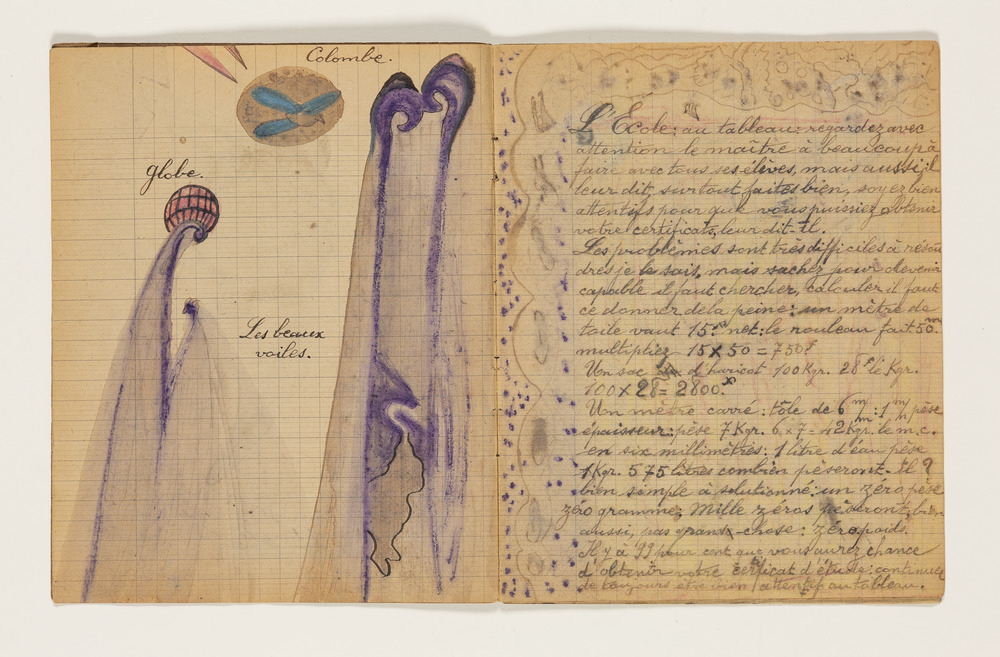 Colombe.
globe.
Les beaux
voiles.
L'École: au tableau: regardez avec
attention le maître à beaucoup à
faire avec tous ses élèves, mais aussi, il
leur dit, surtout faites bien, soyez bien
attentifs pour que vous puissiez obtenir
votre certificats, leur dit-il.
Les problèmes sont très difficiles à résou
dres je le sais, mais sachez pour devenir
capable il faut chercher, calculer il faut
ce donner de la peine: un mètre de
toile vaut 15 net: le rouleau fait 50 m
multipliez 15 x 50 = 750f
Un sac d'haricot 100 Kgr. 28f le Kgr.
100 x 28 = 2800.
Un mètre carré: tôle de 6 m/m: 1 m/m pèse
épaisseur: pèse 7 Kgr. 6 x 7 = 42 Kgr. le m.c.
en six millimètres: 1 litre d'eau pèse
1 Kgr. 575 litres combien pèseront-il ?
bien simple à solutionné: un zéro pèse
zéro gramme: Mille zéros pèseront, bien
aussi, pas grand-chose: zéro, poids.
Il y à 99 pour cent que vous aurez chance
d'obtenir votre cerficat d'étude: continuez
de toujours être bien attentif au tableau.